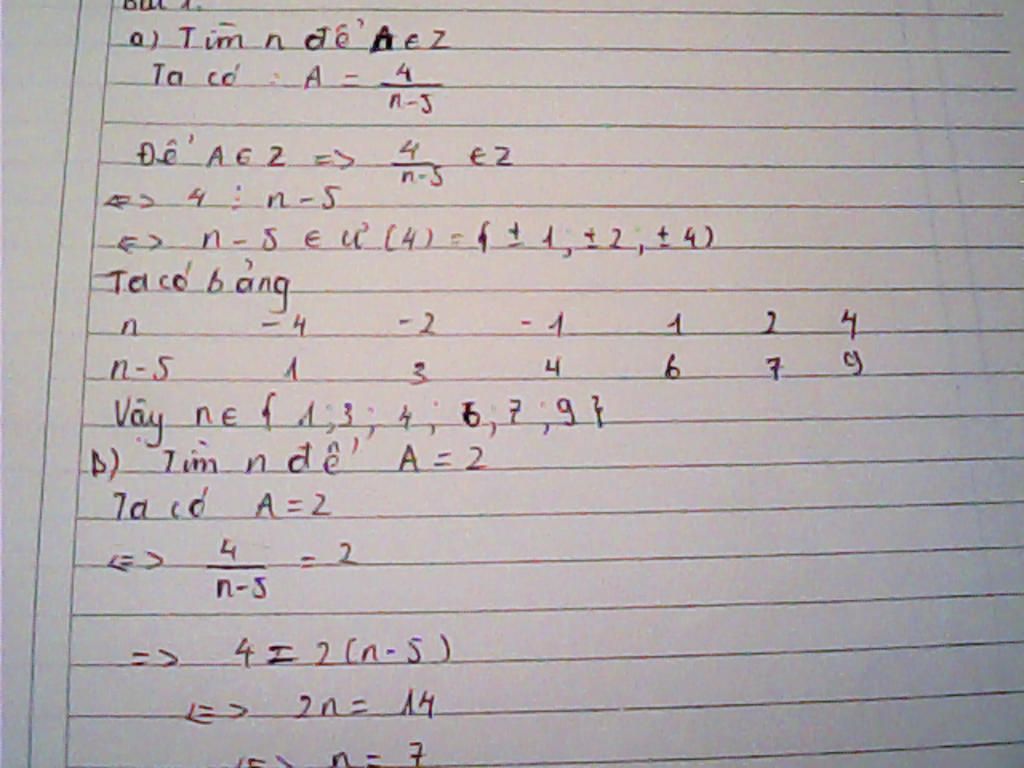 Bài 1.
a) Tìm n để A ∈ Z
Ta có : A = 4/(n-5)
Để A ∈ Z => 4/(n-5) ∈ Z
<=> 4 ⋮ n-5
<=> n-5 ∈ Ư(4) = { ±1; ±2; ±4)
Ta có bảng
n -4 -2 -1 1 2 4
n-5 1 3 4 6 7 9
Vậy n ∈ { 1;3; 4; 6; 7; 9 }
b) Tìm n để A = 2
Ta có A = 2
<=> 4/(n-5) = 2
=> 4 = 2(n-5)
<=> 2n = 14
<=> n = 7